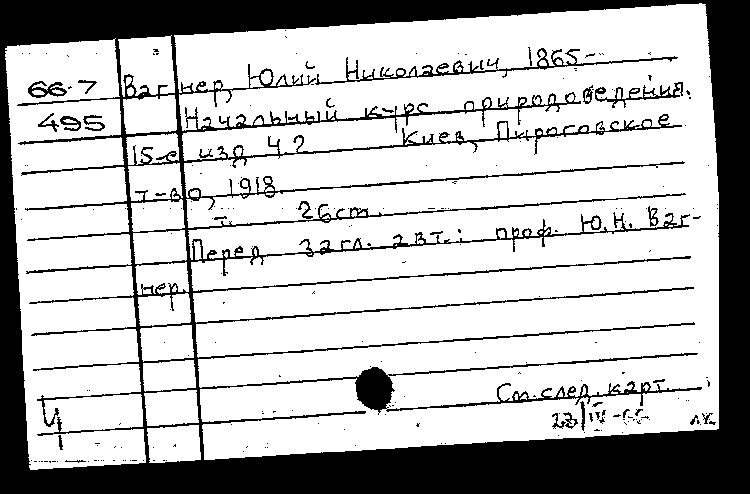 66-7 Вагнер, Юлий Николаевич, 1865-
495 Начальный курс природоведения.
15-е изд Ч.2 Киев, Пироговское
т-во, 1918.
т. 26ст.
Перед загл. авт.: проф. Ю.Н. Ваг-
нер.
См. след. карт.
Ч
28/IV-66 л.к.